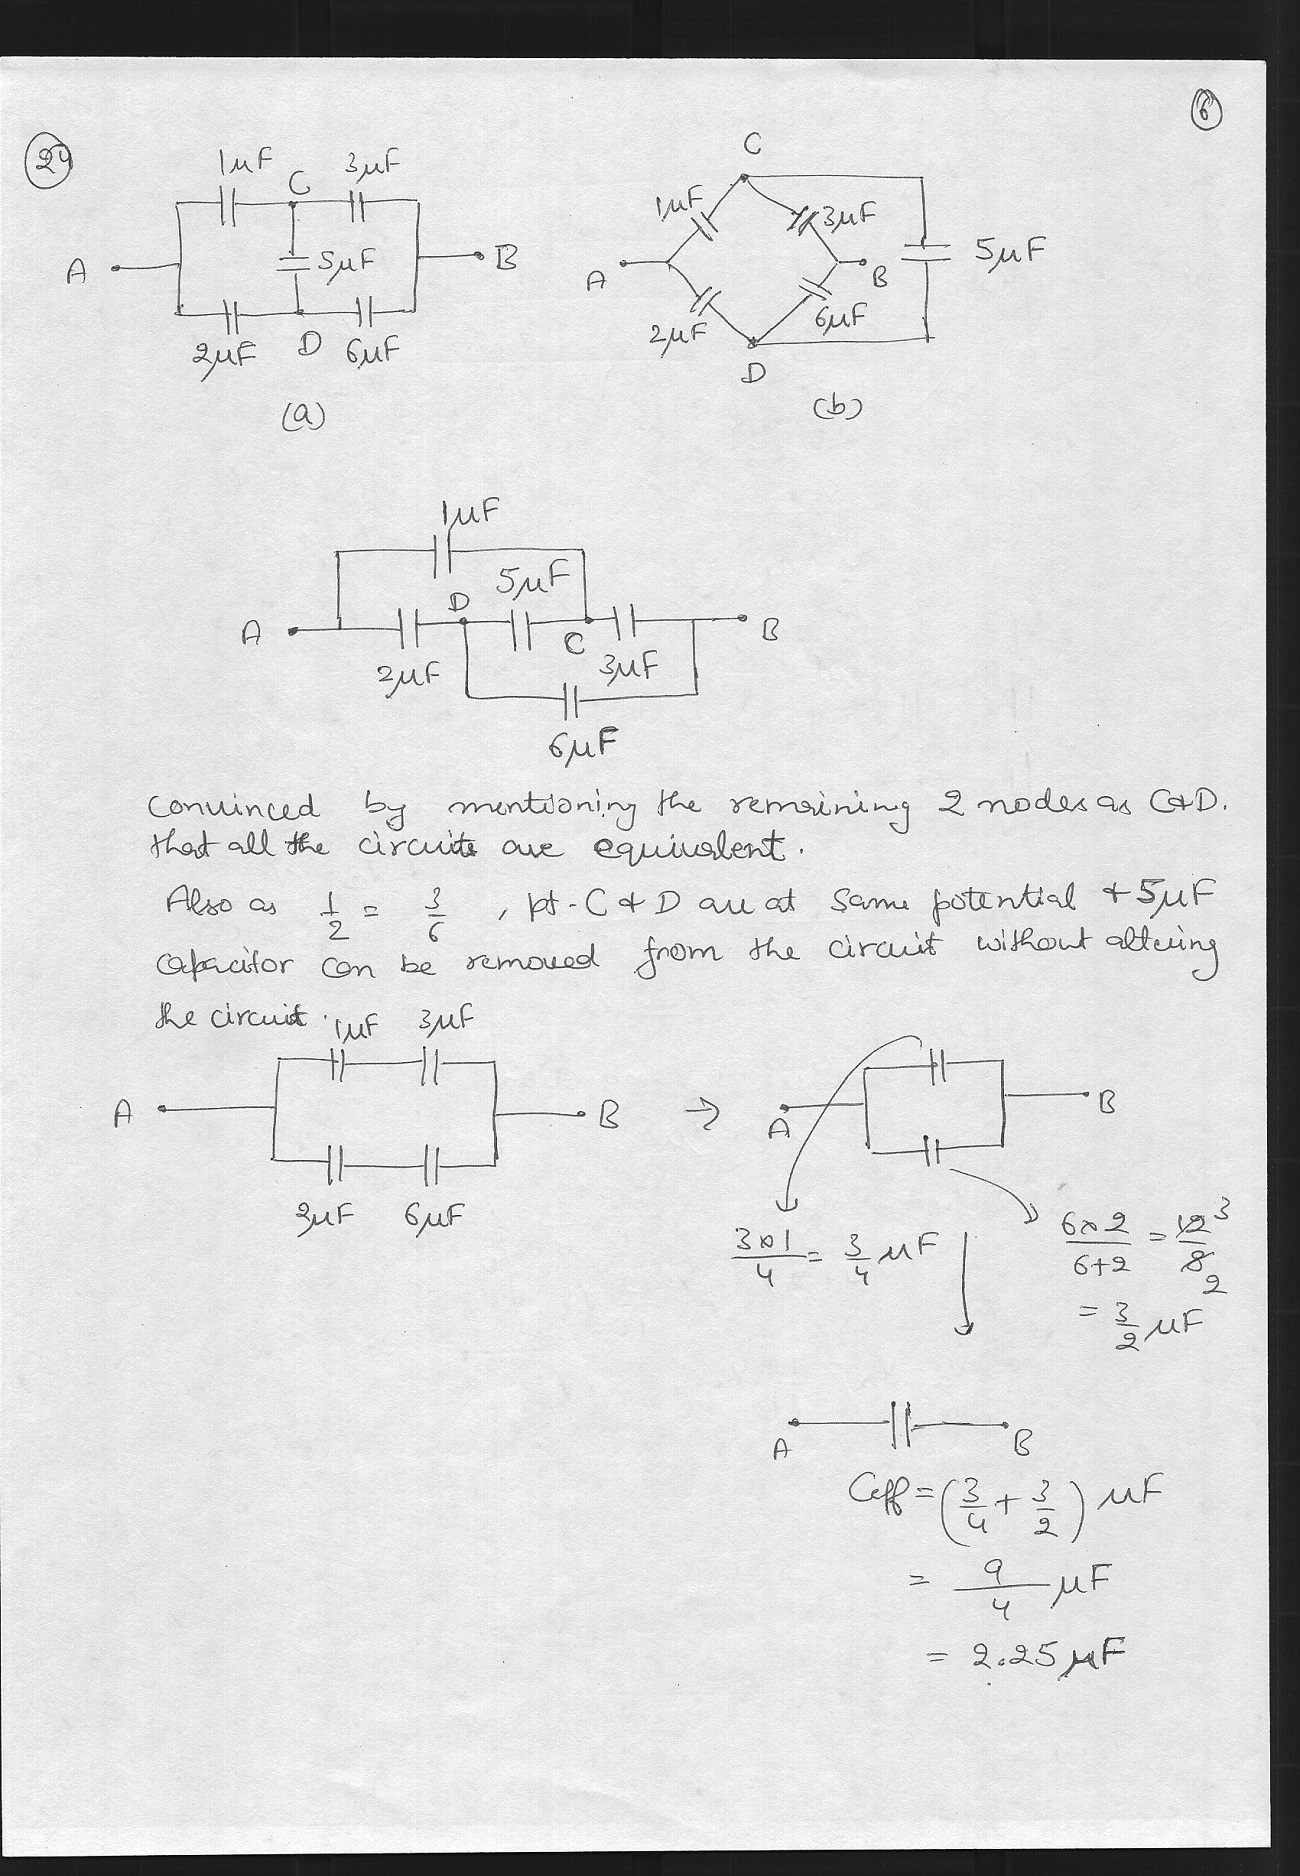 6
24
1μF C 3μF
A 5μF B
2μF D 6μF
(a)
C
1μF 3μF
A B 5μF
2μF 6μF
D
(b)
1μF
5μF
A D C B
2μF 3μF
6μF
Convinced by mentioning the remaining 2 nodes as C&D.
that all the circuits are equivalent.
Also as 1/2 = 3/6, pt-C & D are at same potential & 5μF
capacitor can be removed from the circuit without altering
the circuit.
1μF 3μF
A B → A B
2μF 6μF
3×1/4 = 3/4 μF
6×2/6+2 = 12/8 3 2
= 3/2 μF
A B
Ceff = (3/4 + 3/2) μF
= 9/4 μF
= 2.25 μF